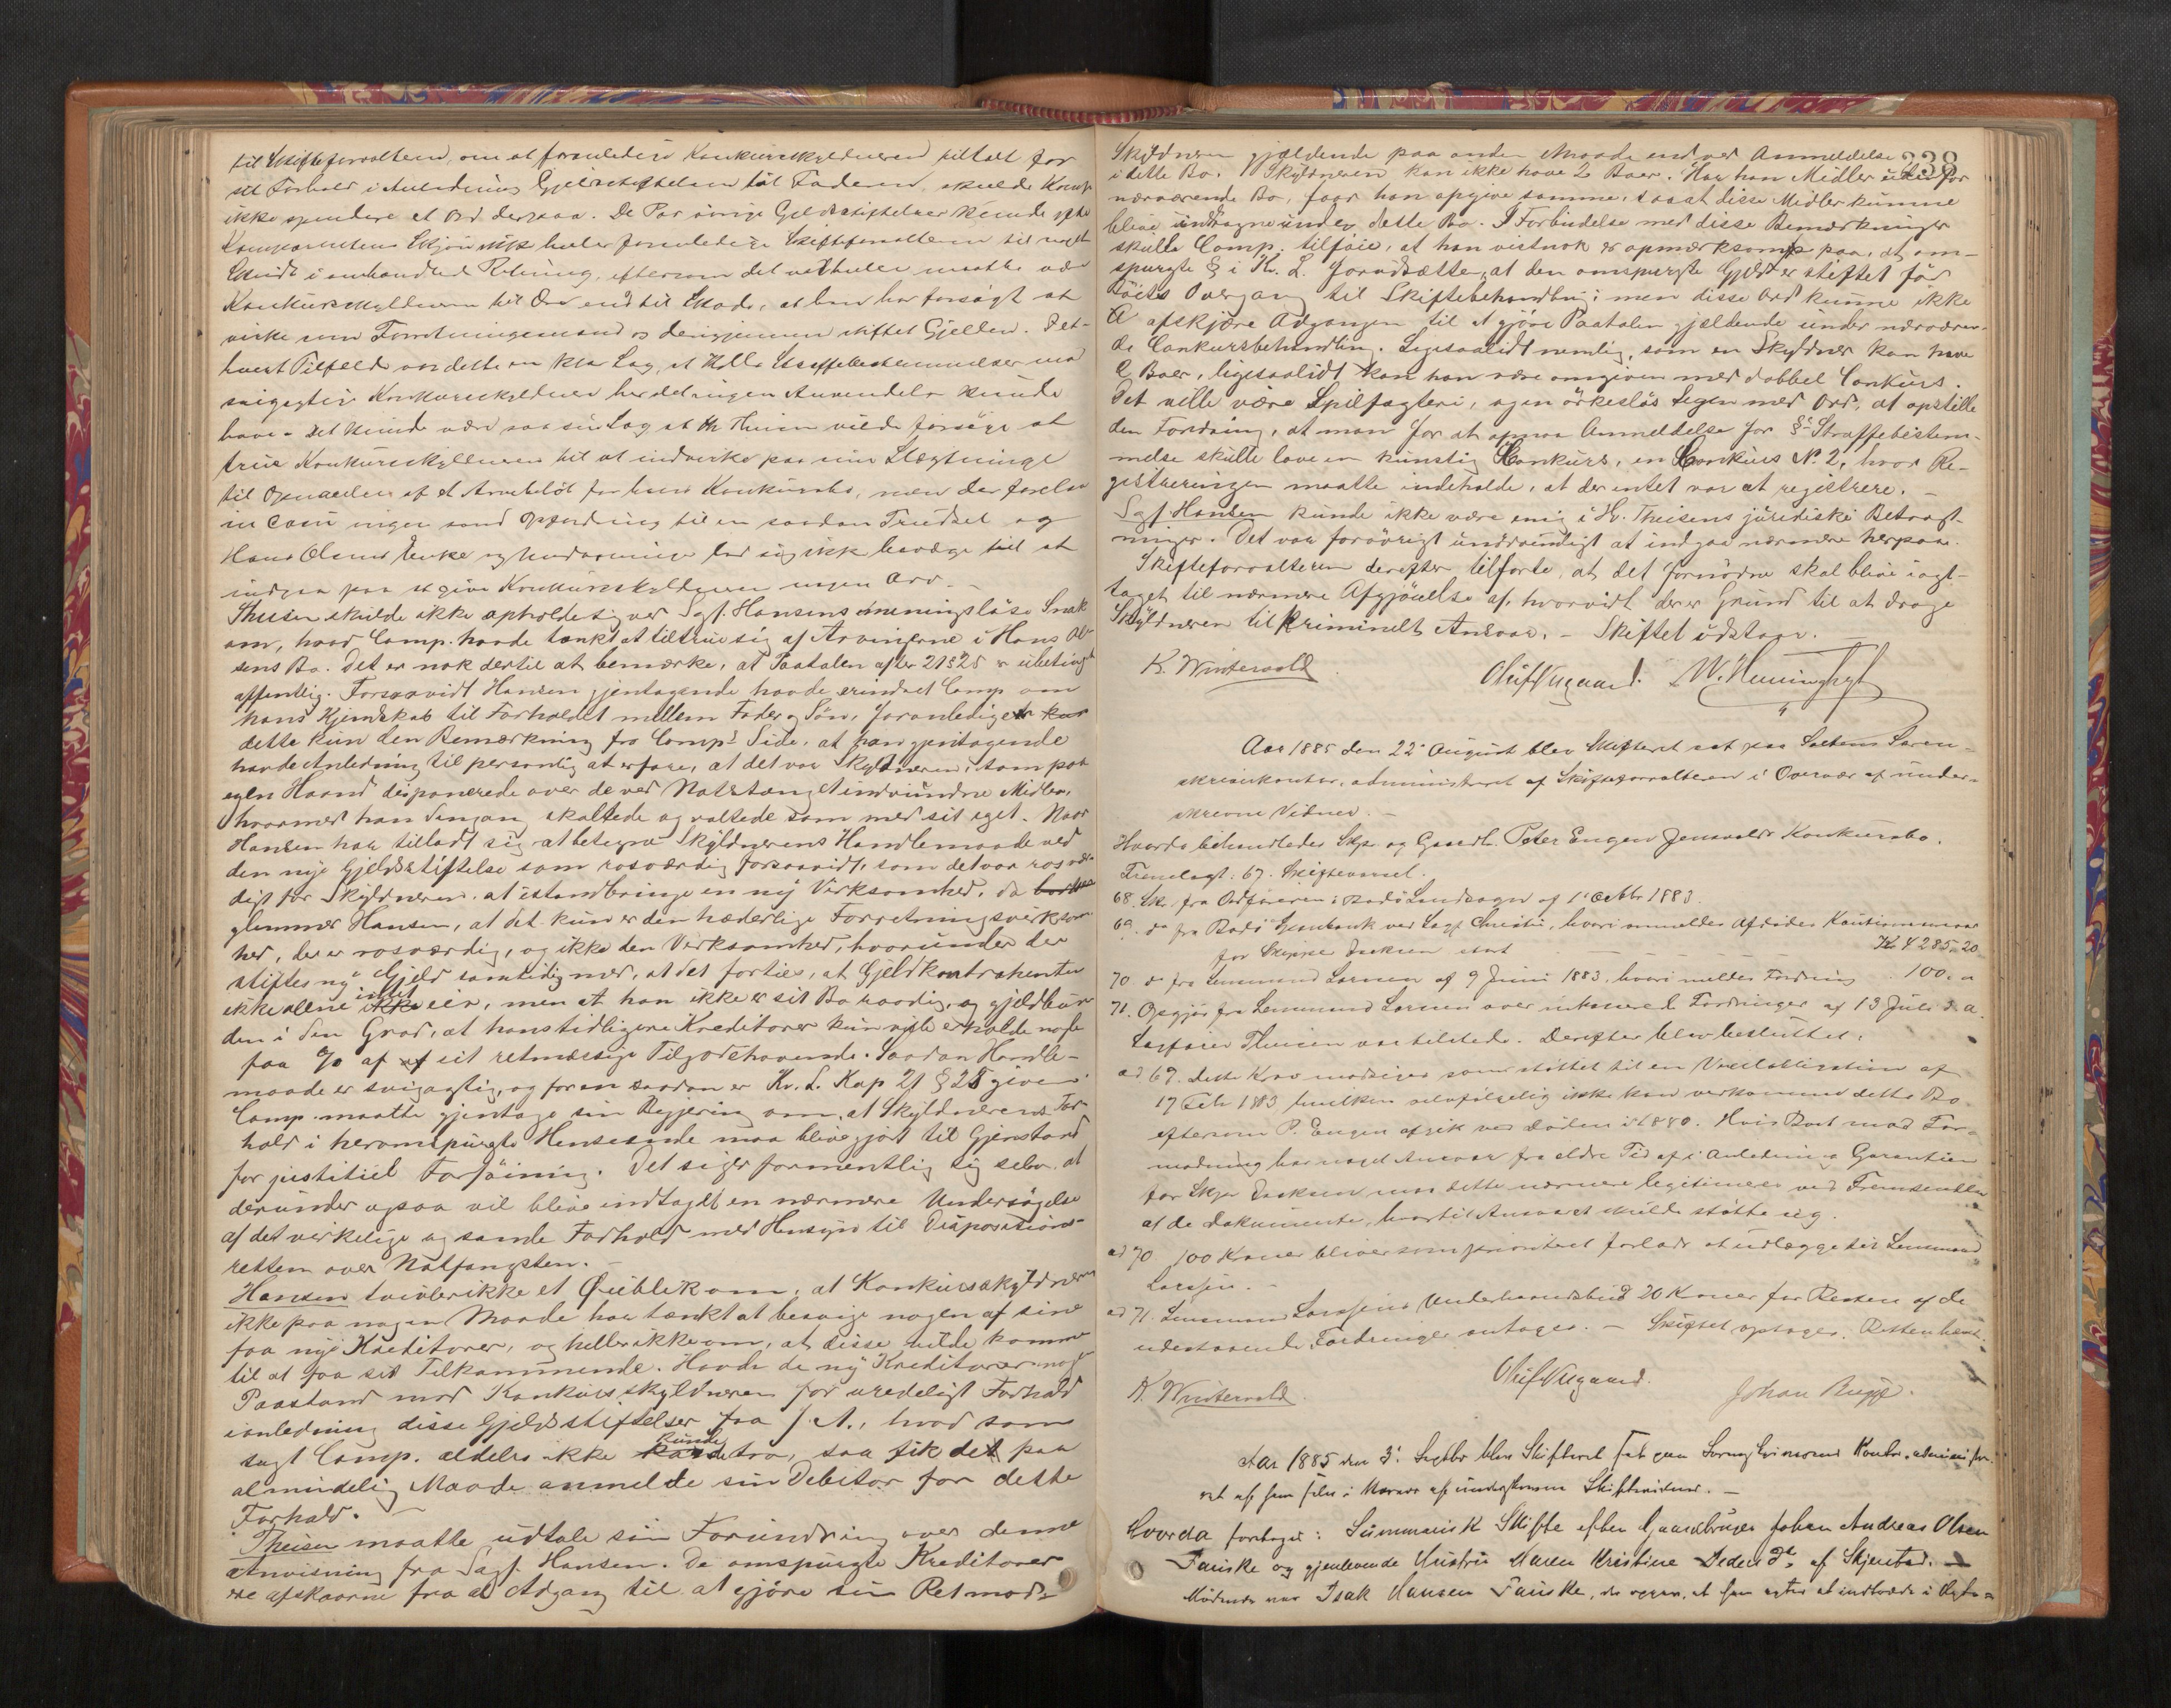 til Skifteforvalteren, om at foranledige Konkursskyldneren tiltalt for
sit Forhold i Anledning Gjeldsstiftelsen til Faderen, skulde Komp
ikke spendere et Ord derpaa. De Par øvrige Gjeldsstiftelser kunde efter
Komparentens Skjøn ikke heller foranledige Skifteforvalteren til noget
Skridt i omhandlede Retning, eftersom det vel heller maatte være
Konkursskyldneren til Ære end til Skade, at han har forsøgt at
virke som Forretningsmand og derigjennem stiftet Gjelden. I et-
hvert Tilfelde var dette en klar Sag, at Kvl's Straffebestemmelser mod
svigagtige Konkursskyldnere her ingen Anvendelse kunde
have. Det kunde være saa sin Sag at Hr Theisen vilde forsøge at
true Konkursskyldneren til at indvirke paa sin Slægtninge
til Opnaaelse af et Arvebeløb for hans Konkursbo, men der forelaa
in casu ingen sand Opfordring til en saadan Trudsel og
Hans Olsens Enke og Medarvinger lod sig ikke bevæge til at
indgaa paa at give Konkursskyldneren nogen Arv. –
Theisen skulde ikke opholde sig ved Sgf. Hansens meningsløse Snak
om, hvad Comp. havde tænkt at tiltrue sig af Arvingerne i Hans Ol-
sens Bo. Det er nok dertil at bemærke, at Paatalen efter 21 § 25 er ubetinget
offentlig. Forsaavidt Hansen gjentagende havde erindret Comp om
hans Kjendskab til Forholdet mellem Fader og Søn, foranlediger
dette kun den Bemærkning fra Comp's Side, at han gjentagende
havde Anledning til personlig at erfare, at det var Skyldneren, som paa
egen Haand disponerede over de ved Notstænget indvundne Midler,
hvormed han dengang skaltede og valtede som med sit eget. Naar
Hansen har tilladt sig at betegne Skyldnerens Handlemaade ved
den nye Gjeldsstiftelse som rosværdig forsaavidt, som det var rosvær-
digt for Skyldneren at istandbringe en ny Virksomhed, da
glemmer Hansen, at det kun er den hæderlige Forretningsvirksom-
hed, der er rosværdig, og ikke den Virksomhed, hvorunder der
stiftes ny Gjeld samtidig med, at det forties, at Gjeldkontrahenten
ikke alene intet eier, men at han ikke er sit Bo raadig, og gjeldbun
den i den Grad, at hans tidligere Kreditorer kun ville erholde nogle
faa % af sit retmæssige Tilgodehavende. Saadan Handle-
maade er svigagtig, og for en saadan er Kv. L. Kap 21 § 25 given
Comp. maatte gjentage sin Begjering om, at Skyldnerens For-
hold i heromspurgte Henseende maa blive gjort til Gjenstand
for justitiel Forføining. Det siger formentlig sig selv, at
derunder ogsaa vil blive indtaget en nærmere Undersøgelse
af det virkelige og sande Forhold med Hensyn til Dispositions-
retten over Notfangsten. –
Hansen tvivler ikke et Øieblik om, at Konkursskyldneren
ikke paa nogen Maade har tænkt at besvige nogen af sine
faa nye Kreditorer, og heller ikke om, at disse vilde komme
til at faa sit Tilkommende. Havde de ny Kreditorer noget
Paastand mod Konkursskyldneren for uredeligt Forhold
i anledning disse Gjeldsstiftelser faa J. A., hvad som
sagt Comp. aldeles ikke kunde tro, saa fik det paa
almindelig Maade anmelde sin Debitor for dette
Forhold. –
Theisen maatte udtale sin Forundring over denne
Anvisning fra Sagf. Hansen. De omspurgte Kreditorer
ere afskaarne fra al Adgang til at gjøre sin Ret mod
238
Skyldneren gjældende paa anden Maade end ved Anmeldelse
i dette Bo. Skyldneren kan ikke have 2 Boer. Har han Midler udenfor
nærværende Bo, faar han opgive samme, saaat disse Midler kunne
blive inddragne under dette Bo. I Forbindelse med disse Bemærkninger
skulle Comp. tilføie, at han vistnok er opmærksom paa, at om-
spurgte § i K. L. forudsætter, at den omspurgte Gjeld er stiftet før
Boets Overgang til Skiftebehandling; men disse Ord kunne ikke
afskjære Adgangen til at gjøre Paatalen gjældende under nærværen-
de Conkursbehandling. Ligesaalidt nemlig, som en Skyldner kan have
2 Boer, ligesaalidt kan han være omgiven med dobbel Conkurs.
Det ville være Spilfægteri, og en ørkesløs Legen med Ord, at opstille
den Fordring, at man for at opnaa Anmeldelse for §'s Straffebestem-
melse skulle lave en kunstig Conkurs, en Conkurs No. 2, hvor Re-
gistreringen maatte indeholde, at der intet var at registrere. –
Sagf. Hansen kunde ikke være enig i Hr. Theisens juridiske Betragt-
ninger. Det var forøvrigt unødvendigt at indgaa nærmere herpaa.
Skifteforvalteren derefter tilførte, at det fornødne skal blive iagt-
taget til nærmere Afgjørelse af, hvorvidt der er Grund til at drage
Skyldneren til kriminelt Ansvar. – Skiftet udstaar.
K. Wintervold Oluf Augaard. W. Henningh
Aar 1885 den 22de August blev Skifteret sat paa Saltens Soren-
skriverkontor, administreret af Skifteforvalteren i Overvær af under-
skrevne Vidner. –
Hvorda behandledes Skpr og Gaardb. Peter Engen Jensvolds Konkursbo.
Fremlagt: 67. Skiftevarsel.
68. Sk. fra Ordføreren i Bodø Landsogn af 1ste Octbr 1883.
69. do fra Bodø Privatbank ved Sagf Christie, hvori anmeldes Afdødes Kautionsansvar
for Skipper Isaksen stort – – – Kr 4285,20
70 do fra Lensmand Larssen af 9 Juni 1883, hvori meldes Fordring . 100. "
71. Opgjør fra Lensmand Larssen over inkasserede Fordringer af 13 Juli d. a.
Sagfører Theisen var tilstede. Derefter blev besluttet:
ad 69. Dette Krav modsiges som støttet til en Vexelobligation af
17 Feb 1883 hvilken selvfølgelig ikke kan vedkomme dette Bo
eftersom P. Engen afgik ved Døden i 1880. Hvis Boet mod For-
modning har noget Ansvar fra eldre Tid af i Anledning Garantien
for Skpr Isaksen maa dette nærmere legitimeres ved Fremsendelse
af de Dokumente, hvortil Ansvaret skulde støtte sig.
ad 70 100 Kroner bliver som prioriteret forlods at udlægge til Lensmand
Larssen. –
ad 71. Lensmand Larssens Underhaandsbud 20 Kroner for Resten af de
udestaaende Fordringer antages. – Skiftet optages. Retten hævet.
K. Wintervold. Oluf Augaard. Johan Bugge.
Aar 1885 den 3die Septbr blev Skifteret sat paa Sorenskriverens Kontor, administre-
ret af ham selv i Nærvær af underskrevne Skiftevidner. –
Hvorda foretoges: Summarisk Skifte efter Gaardbruger Johan Andreas Olsen
Fauske og gjenlevende Hustru Maren Kristine Pedersdtr. af Skjerstad. –
Mødende var Isak Hansen Fauske, der opgav, at han agter at indtræde i Ægte-